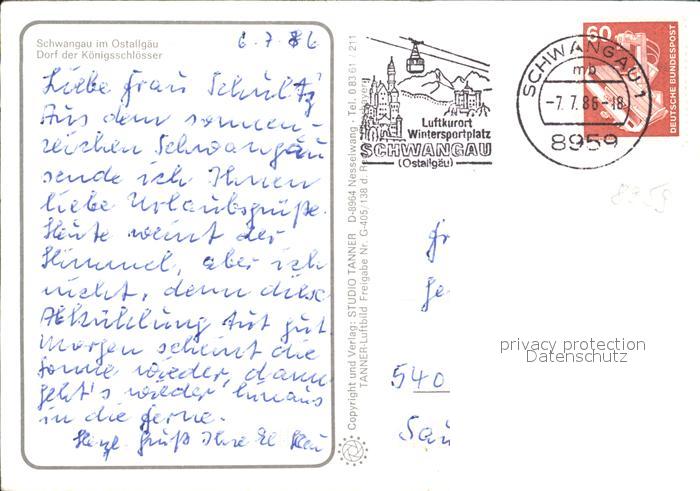 Schwangau im Ostallgäu
Dorf der Königsschlösser
6.7.86
Liebe Frau Schultz
Aus dem sonnen-
reichen Schwangau
sende ich Ihnen
liebe Urlaubsgrüße.
Heute weint der
Himmel, aber ich
nicht, denn diese
Abkühlung tut gut.
Morgen scheint die
Sonne wieder, dann
geht's wieder hinaus
in die Ferne.
Herzl. Gruß Ihre
Copyright und Verlag: STUDIO TANNER D-8964 Nesselwang · Tel. 0 83 61 / 211
TANNER-Luftbild Freigabe Nr. G-405/138 d. Reg.
Luftkurort
Wintersportplatz
SCHWANGAU
(Ostallgäu)
SCHWANGAU 1
mb
-7.7.86-18
8959
60
DEUTSCHE BUNDESPOST
8959
Fr
Ge
privacy protection
Datenschutz
540
Sau